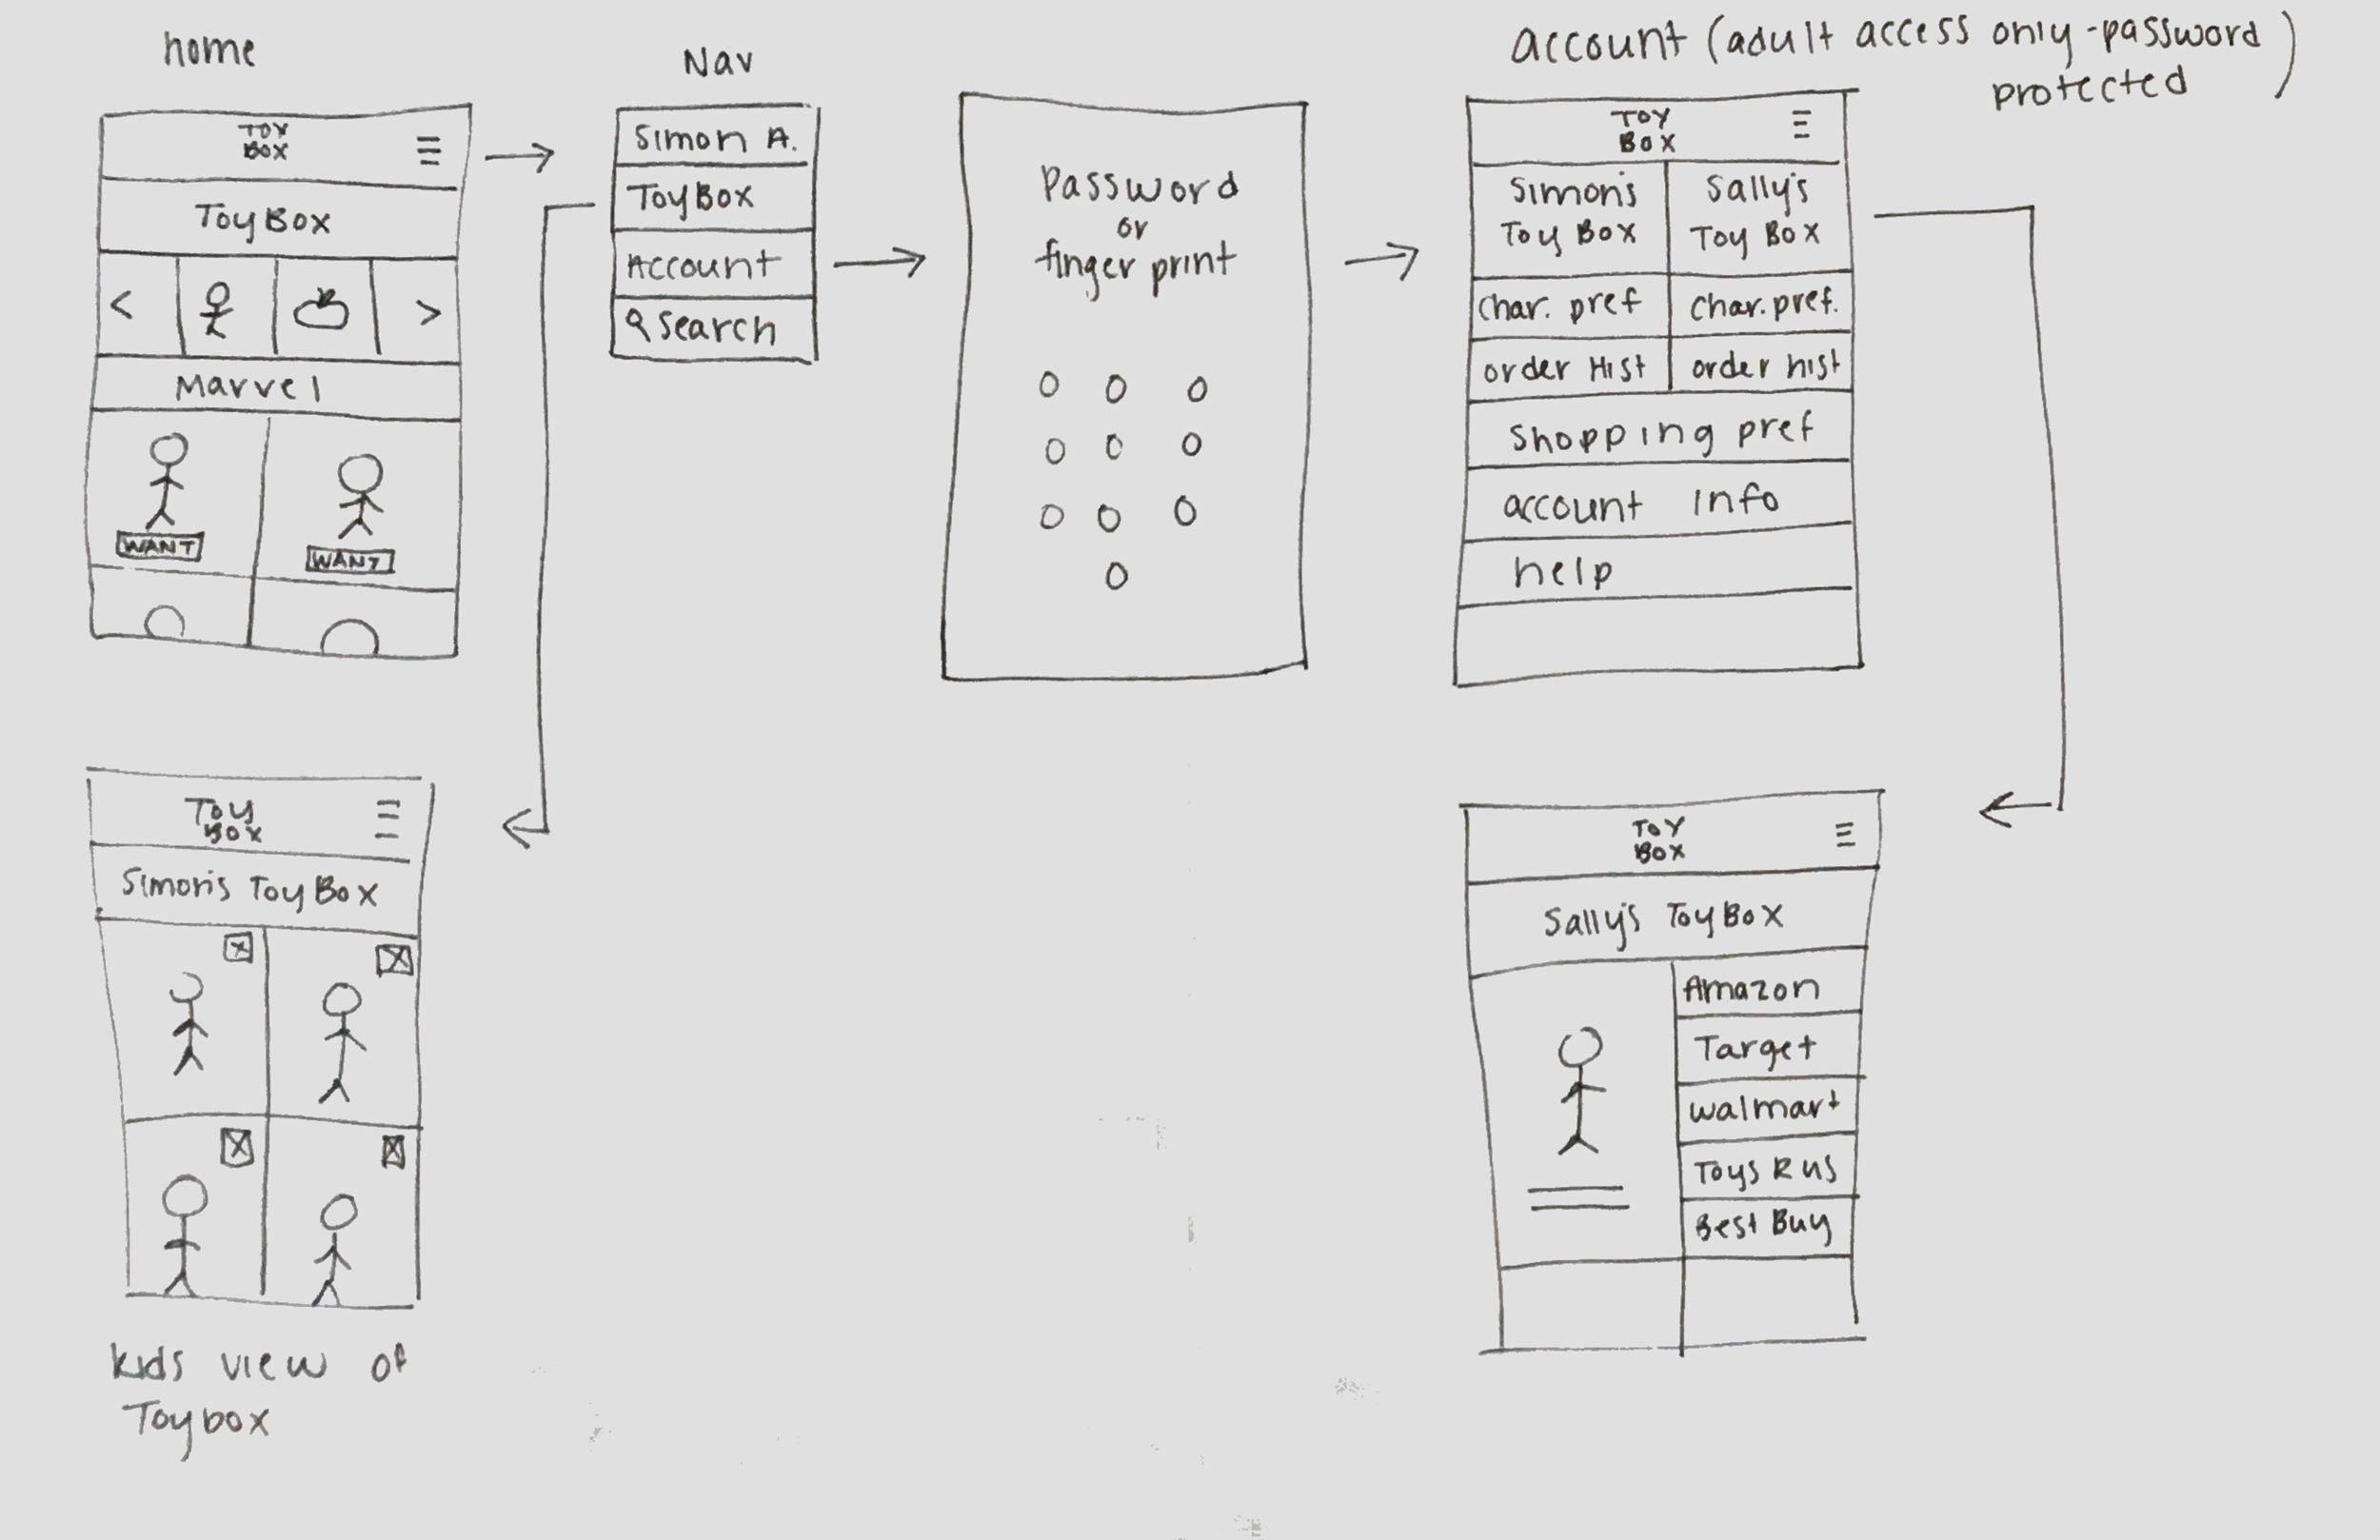 home
TOY
BOX
ToyBox
<
>
Marvel
WANT
WANT
Nav
Simon A.
ToyBox
Account
Search
Password
or
finger print
account (adult access only-password
protected)
TOY
BOX
Simon's
Toy Box
Sally's
Toy Box
char. pref
char. pref.
order Hist
order hist
shopping pref
account info
help
Toy
Box
Simon's ToyBox
X
X
X
X
kids view of
Toybox
TOY
BOX
Sally's ToyBox
Amazon
Target
walmart
Toys R us
Best Buy